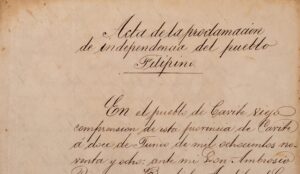 Acta de la proclamacion
de independencia del pueblo
Filipino
En el pueblo de Cavite viejo
comprension de esta provincia de Cavite
á doce de Junio de mil ochocientos no-
venta y ocho: ante mi Don Ambrosio